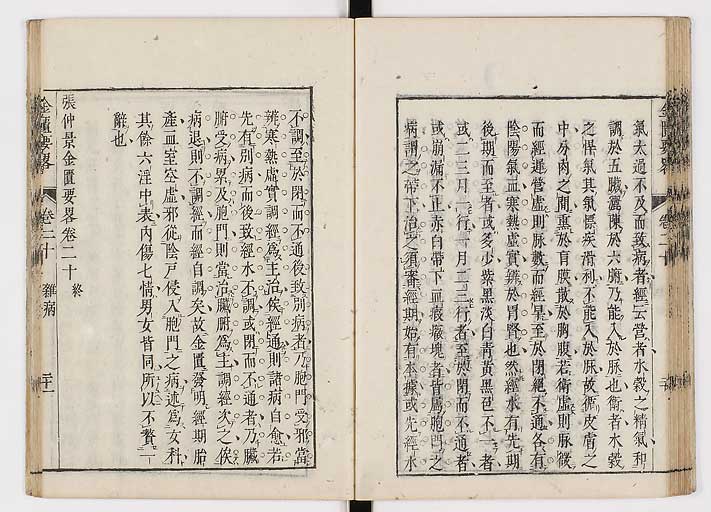 氣太過不及而致病者經云營者水穀之精氣和
調於五臟灑陳於六腑乃能入於脉也衛者水穀
之悍氣其氣慓疾滑利不能入於脉故循皮膚之
中分肉之間熏於肓膜散於胸腹若衛虛則脉緩
而經遲營虛則脉數而經早至於閉絕不通各有
陰陽氣血寒熱虛實辨於胃腎也然經水有先期
後期而至者或多少紫黑淡白青黃黑色不一者
或二三月一行一月二三行者至於閉而不通者
或崩漏不止赤白帶下血瘕癥塊者皆屬胞門之
病謂之帶下治之須審經期始有本據或先經水
不調至於閉而不通後致別病者乃胞門受邪當
辨寒熱虛實調經爲主治俟經通則諸病自愈若
先有別病而後致經水不調或閉而不通者乃臟
腑受病累及胞門則當治臟腑爲主調經次之俟
病退則不調經而經自調矣故金匱發明經期胎
產血室空虛邪從陰戶侵入胞門之病述爲女科
其餘六淫中表內傷七情男女皆同所以不贅一
辭也
張仲景金匱要畧卷二十 終
金匱要畧 卷二十 雜病 二十一